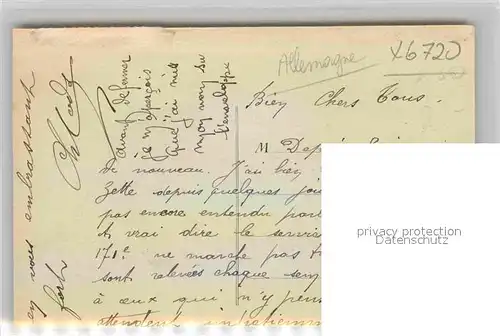 Allemagne
X6720
Bien Chers Tous.
M Depuis
de nouveau. J'ai
Zette depuis quelques
pas encore entendu
A vrai dire le
171e ne marche pas
sont relevées chaque
à ceux qui n'y
attendent
avant de fermer
je m'aperçois
que j'ai mis
mon nom su
l'enveloppe
en vous embrassant
fort
privacy protection
Datenschutz